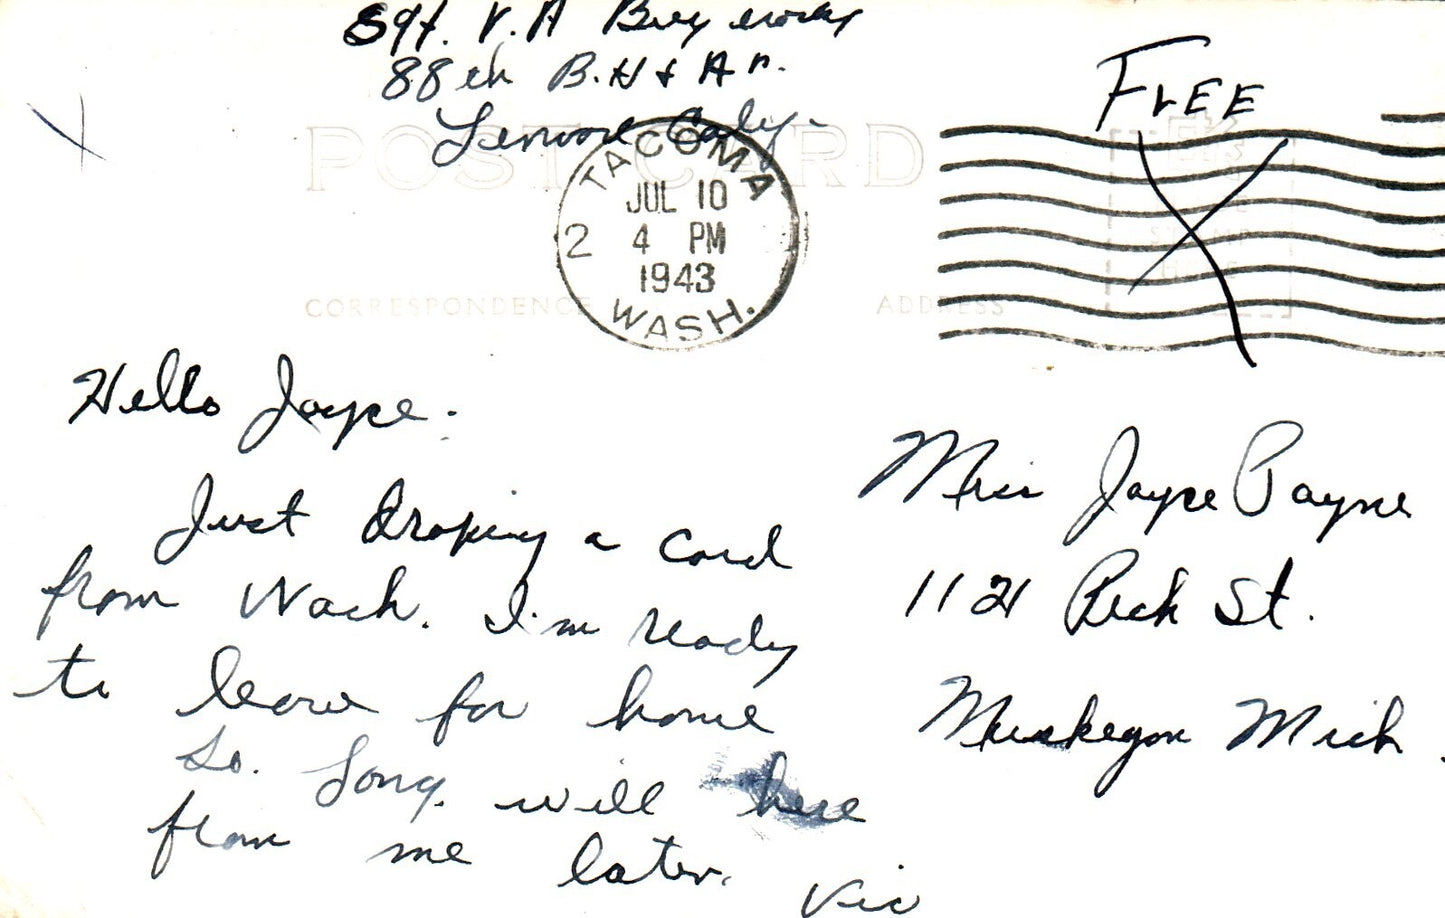 Sgt. V. A
88th B. H & A
FREE
POST CARD
TACOMA
JUL 10
2 4 PM
1943
WASH.
CORRESPONDENCE
ADDRESS
PLACE
STAMP
HERE
Hello Joyce.
Just droping a card
from Wash. I'm ready
to leave for home
So. Long. will here
from me later. Vic
Miss Joyce Payne
1121 Peck St.
Muskegon Mich.